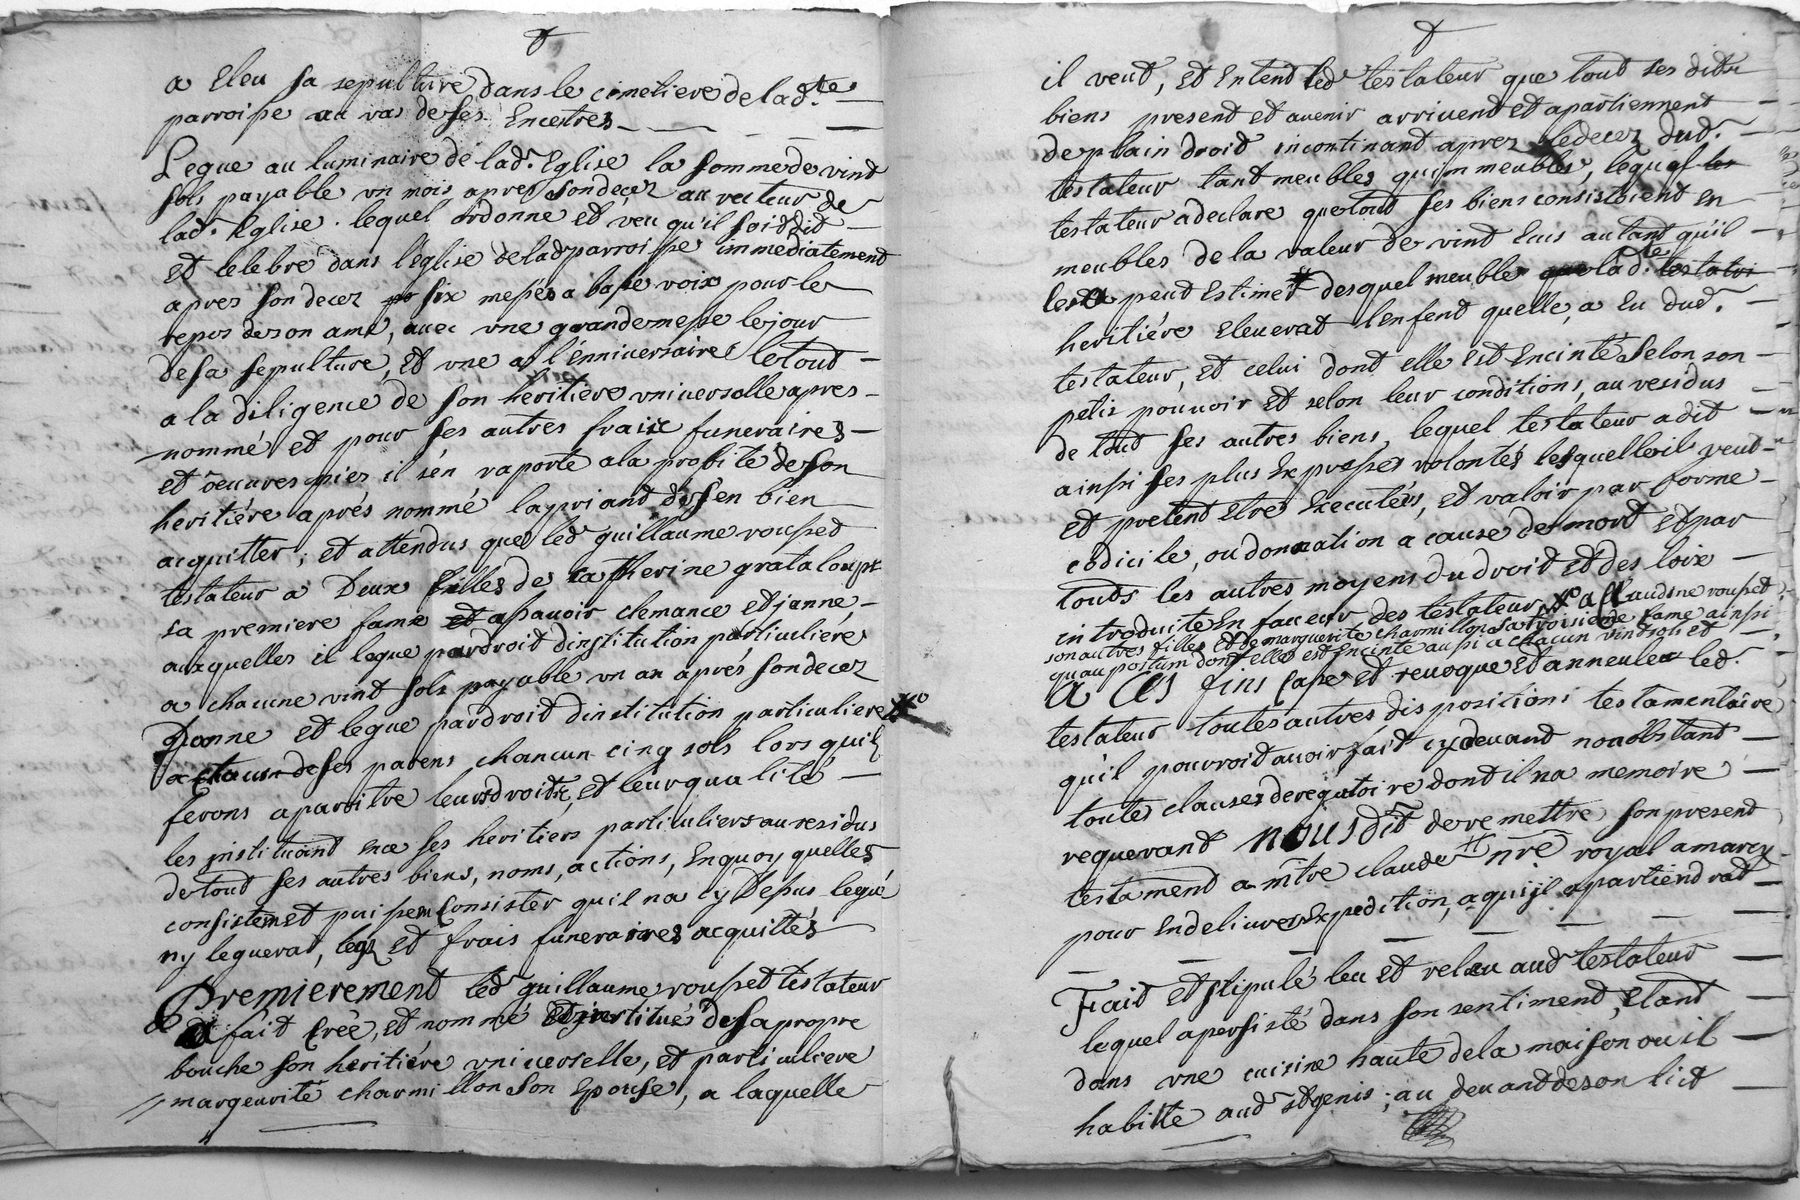 a Eleu sa sepulture dans le cimetiere de lad.te
parroisse au vas de ses Encestres
Legue au luminaire de lad. Eglise la somme de vint
sols payable un mois apres son decez au recteur de
lad. Eglise. lequel ordonne et veu qu'il soit dit
et celebre dans l'eglise de lad parroisse immediatement
apres son decez six messes a basse voix pour le
repos de son ame, avec une grande messe le jour
de sa sepulture, et une a l'enniversaire le tout
a la diligence de son heritiere universelle apres
nommé et pour ses autres fraix funeraires
et oeuvres pies il s'en raporte a la probité de son
heritiére aprés nommé la priant de s'en bien
acquitter; et attendus que led guillaume rousset
testateur a Deux filles de catherine grataloupt
sa premiere fame et assavoir clemance et janne,
auxquelles il legue par droit d'institution particuliere
a chacune vint sols payable un an aprés son decez
Donne et legue par droit d'institution particuliere
a chacun de ses parens chancun cinq sols lors quil
ferons aparoitre leurs droits, et leur qualité
les instituant en ses heritiers particuliers au residus
de tout ses autres biens, noms, actions, en quoy quelles
consistent et puissent consister qu'il na cy dessus legué
ny leguerat, legs et frais funeraires acquittés
Premierement led guillaume rousset testateur
a fait créé, et nommé et institué de sa propre
bouche son heritiére universelle, et particuliere
margeurite charmillon son Epouse, a laquelle
il veut, et Entend led testateur que tout ses dits
biens present et avenir arrivent et apartiennent
de plain droit incontinant aprez le decez dud.
testateur tant meubles qu'immeubles, lequel
testateur a declare que tout ses biens consistoient en
meubles de la valeur de vint Ecus autant qu'il
peut Estimer desquel meubles lad.te
heritiére Eleverat l'enfent quelle, a Eu dud.
testateur, et celui dont elle est Encinte selon son
petis pouvoir et selon leur conditions, au residus
de tout ses autres biens, lequel testateur a dit
ainssi ses plus Expresses volontés lesquelle il veut
et pretent Etres Executés, et valoir par forme
codicile, ou donnation a cause de mort et par
touts les autres moyens du droit et des loix
introduite en faveur des testateur, a Claudine rousset
son autres filles et de marguerite charmillon sa troisieme fame ainssi
quau postum dont elle est Encinte aussi a chacun vind sols et
a ces fins casse et revoque et anneule led.
testateur toutes autres dispositions testamentaire
qu'il pourroit avoir fait cy devand nonobstant
toutes clauses derogatoire dont il na memoire
requerant nousdit de remettre son present
testament a mtre claude nre royal a marcy
pour En delivrer Expedition, a qui il apartiendrat
Fait et stipulé leu et releu aud testateur
lequel a persisté dans son sentiment, Etant
dans une cuisine haute de la maison ou il
habitte aud st genis; au devant de son lict